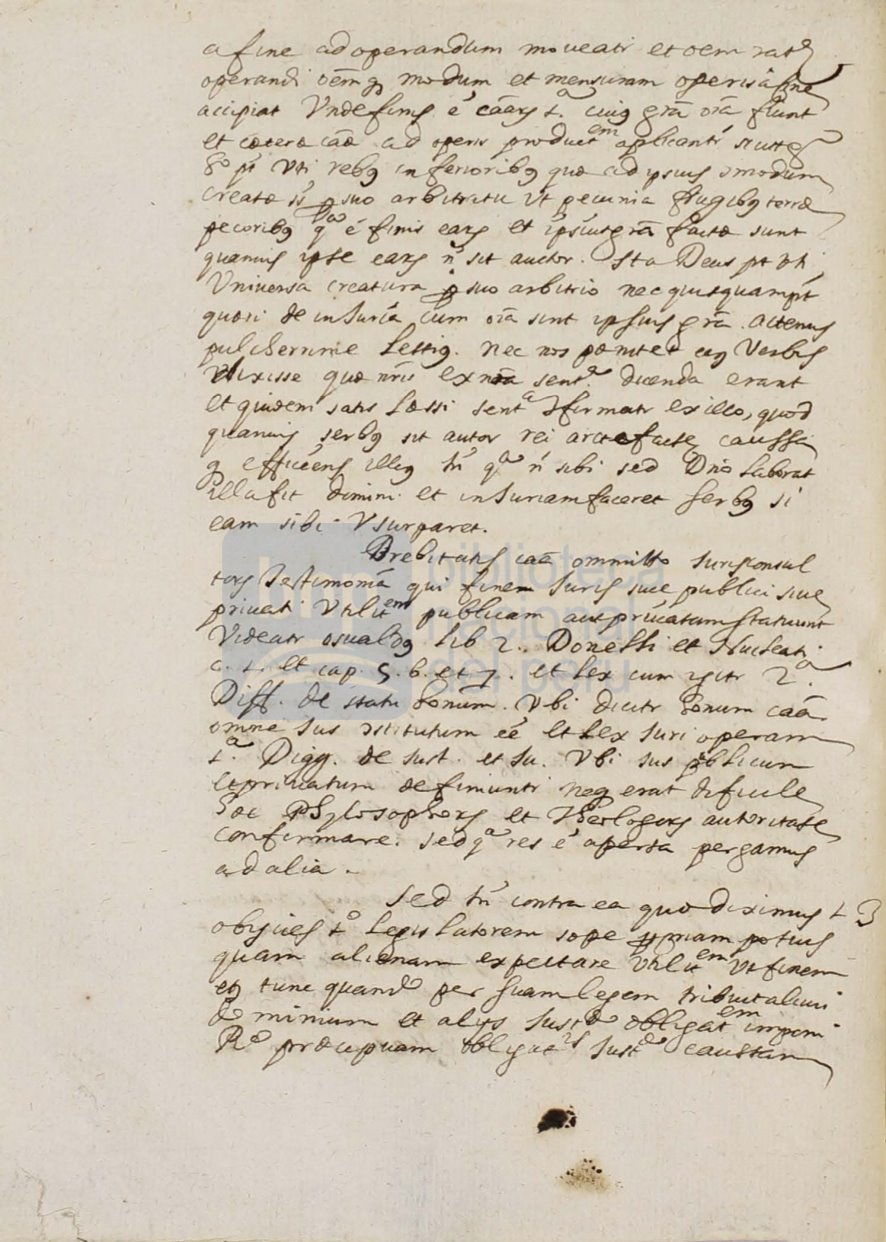 a fine ad operandum moveatr et oem
operandi oemq modum et mensuram operis a fine
accipiat Unde finis e caarum 1.a cuius gra oia fiunt
et caetera caae ad operis productem applicantr
uti rebus inferioribus quae ad ipsius modum
creatae st suo arbitratu ut pecunia frugibus terrae
pecoribus qa e finis earum et ipsius gra factae sunt
quamvis ipse earum n sit auctor. Ita Deus pt uti
Universa creatura pro suo arbitrio nec quisquam pt
queri de inIuria cum oia sint ipsius gra. actenus
pulcherrime Lessius. nec nos poenitet eius verbis
dixisse quae nris ex nra senta dicenda erant
et quidem satis Lessi senta confirmatr ex illo, quod
quamvis servus sit autor rei arte factae caussa
q efficiens illius tn qa n sibi sed Dno laborat
illa fit domini et inIuriam faceret servus si
eam sibi Usurparet.
Brevitatis caa ommitto Iurisconsul
torum Testimonia qui finem Iuris sive publici sive
privati Utilitem publicam aut privatam statuunt
Videatr osualdus Lib 2. Donelli et Nucleati
c. 1. et cap. 5. 6. et 7. et Lex cum igitr 2.a
Diff. de statu hominum. Ubi dicitr hominum caa
omne Ius constitutum ee et Lex Iuri operam
1.a Digg. de Iust. et Iu. Ubi Ius publicum
et privatum definiuntr neq erat dificile
hoc PHylosophorum et Theologorum autoritate
confirmare. sed qa res e aperta pergamus
ad alia.
Sed tn contra ea quae diximus 1 3
obijcies 1.o Legislatorem saepe propriam potius
quam alienam expectare Utilitem Ut finem
et tunc quando per suam legem tribuit alicui
dominium et alijs Iustae obligatem imponi
Ro praecipuam obligatis Iustae caussam